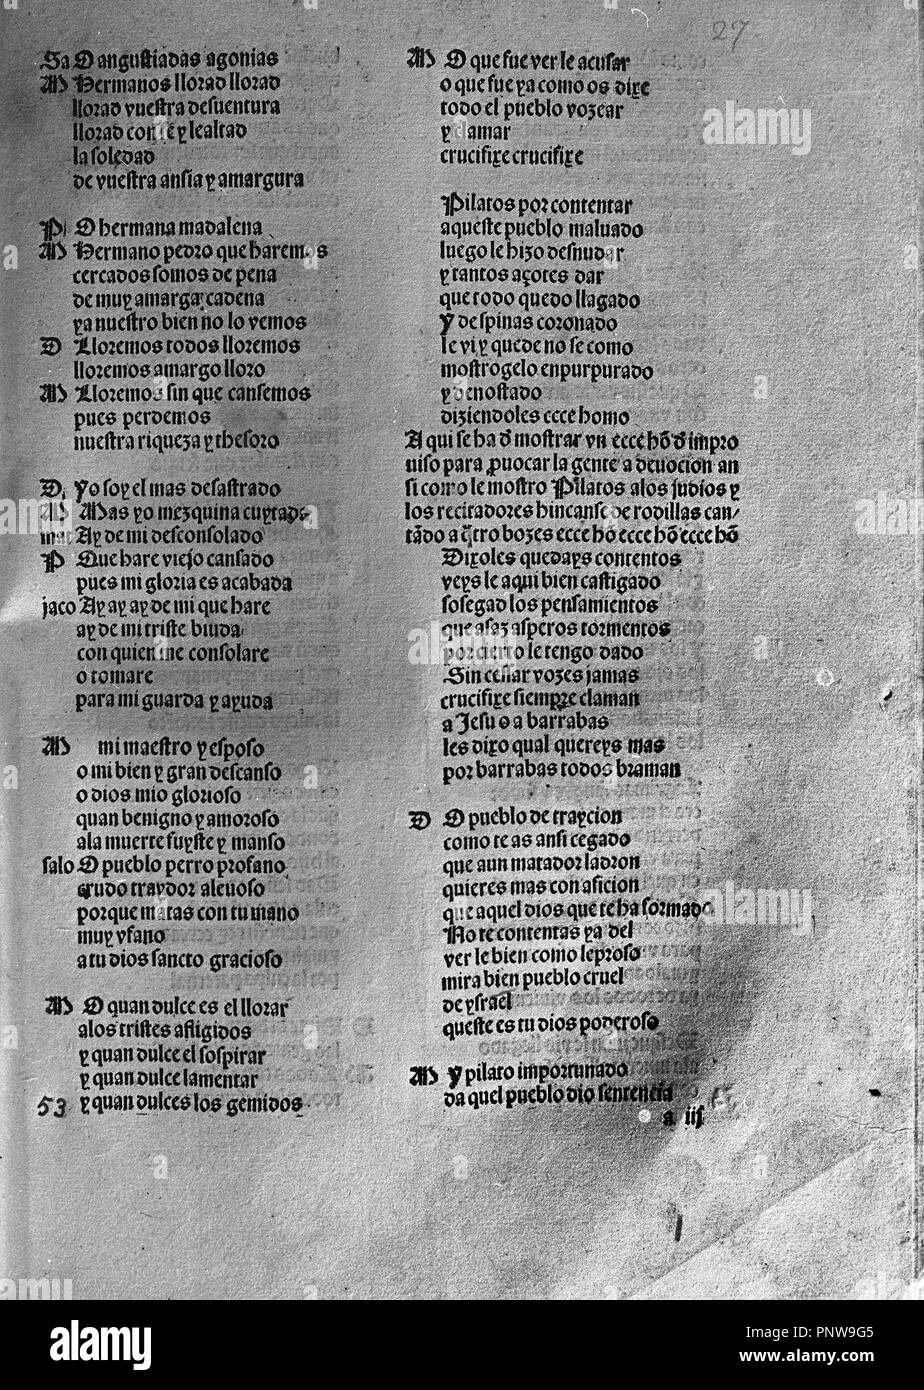 27
Sa O angustiadas agonias
M Hermanos llorad llorad
llorad vuestra desuentura
llorad con fe y lealtad
la soledad
de vuestra ansia y amargura
Pi O hermana madalena
M Hermano pedro que haremos
cercados somos de pena
de muy amarga cadena
ya nuestro bien no lo vemos
D Lloremos todos lloremos
lloremos amargo lloro
M Lloremos sin que cansemos
pues perdemos
nuestra riqueza y thesoro
D. yo soy el mas desastrado
M Mas yo mezquina cuytada
mar Ay de mi desconsolado
P Que hare viejo cansado
pues mi gloria es acabada
jaco Ay ay ay de mi que hare
ay de mi triste biuda
con quien me consolare
o tomare
para mi guarda y ayuda
M mi maestro y esposo
o mi bien y gran descanso
o dios mio glorioso
quan benigno y amoroso
ala muerte fuyste y manso
salo O pueblo perro profano
crudo traydor aleuoso
porque matas con tu mano
muy vfano
a tu dios sancto gracioso
M O quan dulce es el llorar
alos tristes afligidos
y quan dulce el sospirar
y quan dulce lamentar
53 y quan dulces los gemidos
M O que fue ver le acusar
o que fue ya como os dixe
todo el pueblo vozear
y llamar
crucifixe crucifixe
Pilatos por contentar
aqueste pueblo maluado
luego le hizo desnudar
y tantos açotes dar
que todo quedo llagado
y de spinas coronado
le vi y quede no se como
mostrogelo enpurpurado
y denostado
diziendoles ecce homo
Aqui se ha đ mostrar vn ecce hõ đ impro
uiso para ꝓuocar la gente a deuocion an
si como le mostro Pilatos alos judios y
los recitadores hincanse de rodillas can-
tãdo a q̃tro bozes ecce hõ ecce hõ ecce hõ
Dixoles quedays contentos
veys le aqui bien castigado
sosegad los pensamientos
que asaz asperos tormentos
por cierto le tengo dado
Sin cessar vozes jamas
crucifixe siempre claman
a Jesu o a barrabas
les dixo qual quereys mas
por barrabas todos braman
D O pueblo de traycion
como te as ansi cegado
que aun matador ladron
quieres mas con aficion
que aquel dios que te ha formado
No te contentas ya del
ver le bien como leproso
mira bien pueblo cruel
de ysrael
queste es tu dios poderoso
M y pilato importunado
da quel pueblo dio sentencia
a iij
alamy
Image ID: PNW9G5
www.alamy.com